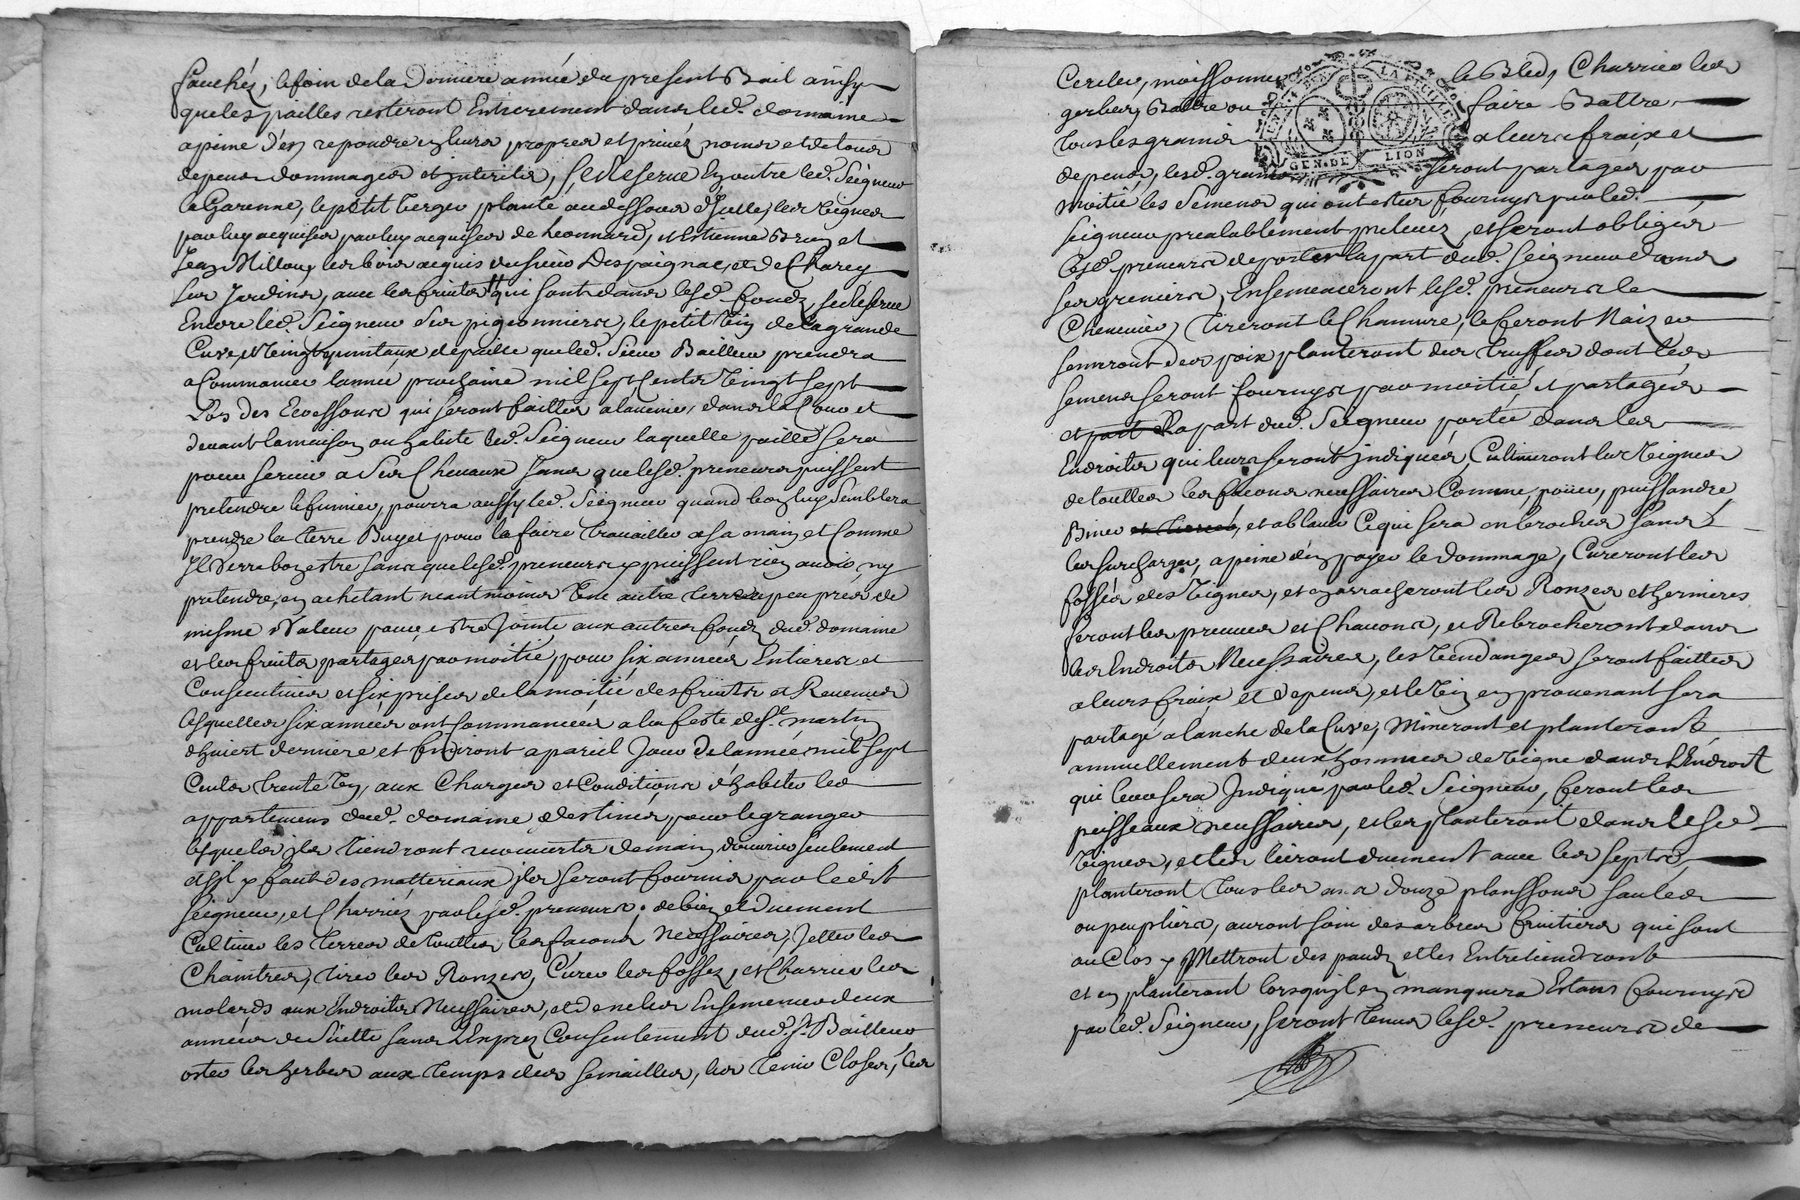 fauchés, le foin de la Derniere année du present Bail ainsy
que les pailles resteront Entierement dans led. domaine
a peine d'en repondre en leurs propres et privéz noms et de tous
depens dommages et interests, se Reserve En outre led. Seigneur
la Garenne, le petit verger planté au dessous d'
par luy acquises par luy acquises de Leonnard, et Estienne et
Jean Millon, les bois acquis du sieur Despaignac, et de Charcy
ses Jardins, avec les fruits qui sont dans lesd. fondz, se Reserve
Encore led. Seigneur ses pigeonniers, le petit vin de la grande
Cuve, et vingt quintaux de paille que led. Sieur Bailleur prendra
a Commancer l'année prochaine mil sept Cents vingt sept
Lors des Ecossours qui seront faittes a l'avenir, dans la Cour et
devant la maison ou habite led. Seigneur laquelle paille sera
pour servir a ses Chevaux sans que lesd. preneurs puissent
pretendre le fumier, pourra aussy led. Seigneur quand bon luy Semblera
prendre la terre Buyet pour la faire travailler a sa main et Comme
Il Verra bon estre sans que lesd. preneurs y puissent rien avoir ny
pretendre, en achetant neantmoins Une autre terre a peu prés de
mesme Valeur pour estre Jointe aux autres fondz dud. domaine
et les fruits partagés par moitié, pour six années Entieres et
Consecutives et six prises de la moitié des fruits et Revenus
lesquelles six années ont Commancées a la feste de St. martin
d'hiver derniere et finiront a pareil Jour De l'année mil sept
Cents trente Un, aux Charges et Conditions d'habiter les
appartemens dud. domaine destinés pour le granger
lesquels ils tiendront recouverts de main d'ouvrier seulement
et s'il y faut des matteriaux ils seront fournis par ledit
Seigneur, et Charriés par lesd. preneurs; de bien et duement
Cultiver les terres de touttes les facons Necessaires, Jetter les
Chaintres, tirer les Ronzes, Curer les fossez, et Charrier les
molards aux Endroits Necessaires, et de ne les Ensemencer deux
années de Suitte sans L'Exprez Consentement dud. Sr. Bailleur
oster les herbes aux temps des semailles, les tenir Closes, les
Cercler, moissonner le Bled, Charrier les
gerbes, Battre ou faire Battre
tous les grains a leurs fraix et
depens, lesd. grains seront partagés par
moitié les Semens qui ont estées fournys par led.
Seigneur prealablement prelevéz, et seront obligés
lesd. preneurs de porter la part dud. Seigneur dans
ses greniers, Ensemenceront lesd. preneurs le
Chenevier, tireront le Chanvre, le feront Naizer
semeront des poix planteront des truffes dont les
semens seront fournys par moitié, et partagés
et part La part dud. Seigneur portée dans les
Endroits qui leurs seront Indiqués, Cultiveront les Vignes
de touttes les facons necessaires Comme, poüer, puissandre
Biner et tierser, et ablaner Ce qui sera sans
les surcharger, a peine d'en payer le dommage, Cureront les
fosses des Vignes, et en arracheront les Ronzes et
feront les preuves et Chavons, et Rebrocheront dans
les Endroits Necessaires, les Vendanges seront faittes
a leurs fraix et depens, et le Vin en provenant sera
partagé a l'anche de la Cuve, Mineront et planteront
annuellement deux hommes de Vigne dans L'Endroit
qui leur sera Indiqué par led. Seigneur, feront les
peisseaux necessaires, et les planteront dans lesd.
Vignes, et les lieront duement avec les septs,
planteront tous les ans douze planssons saules
ou peupliers, auront soin des arbres fruitiers qui sont
au Clos y Mettront des paux et les Entretiendront
et en planteront lorsqu'il en manquera Estans fournys
par led. Seigneur, seront tenus lesd. preneurs de
GEN. DE LION